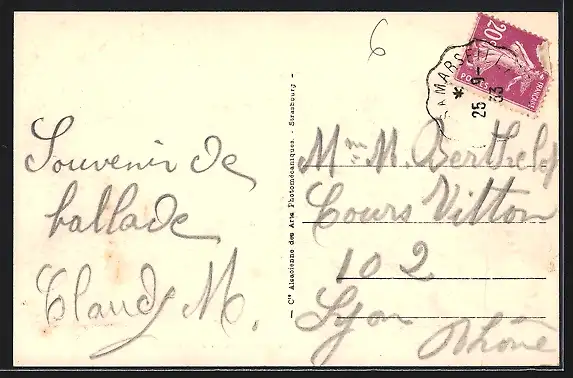 6
20c
POSTES
FRANÇAISE
A MARSEILLE
* 25 9-
33
Souvenir de
ballade
Claudy M.
— Cie Alsacienne des Arts Photomécaniques. - Strasbourg —
Mme M. Berthelot
Cours Vitton
102
Lyon
Rhône